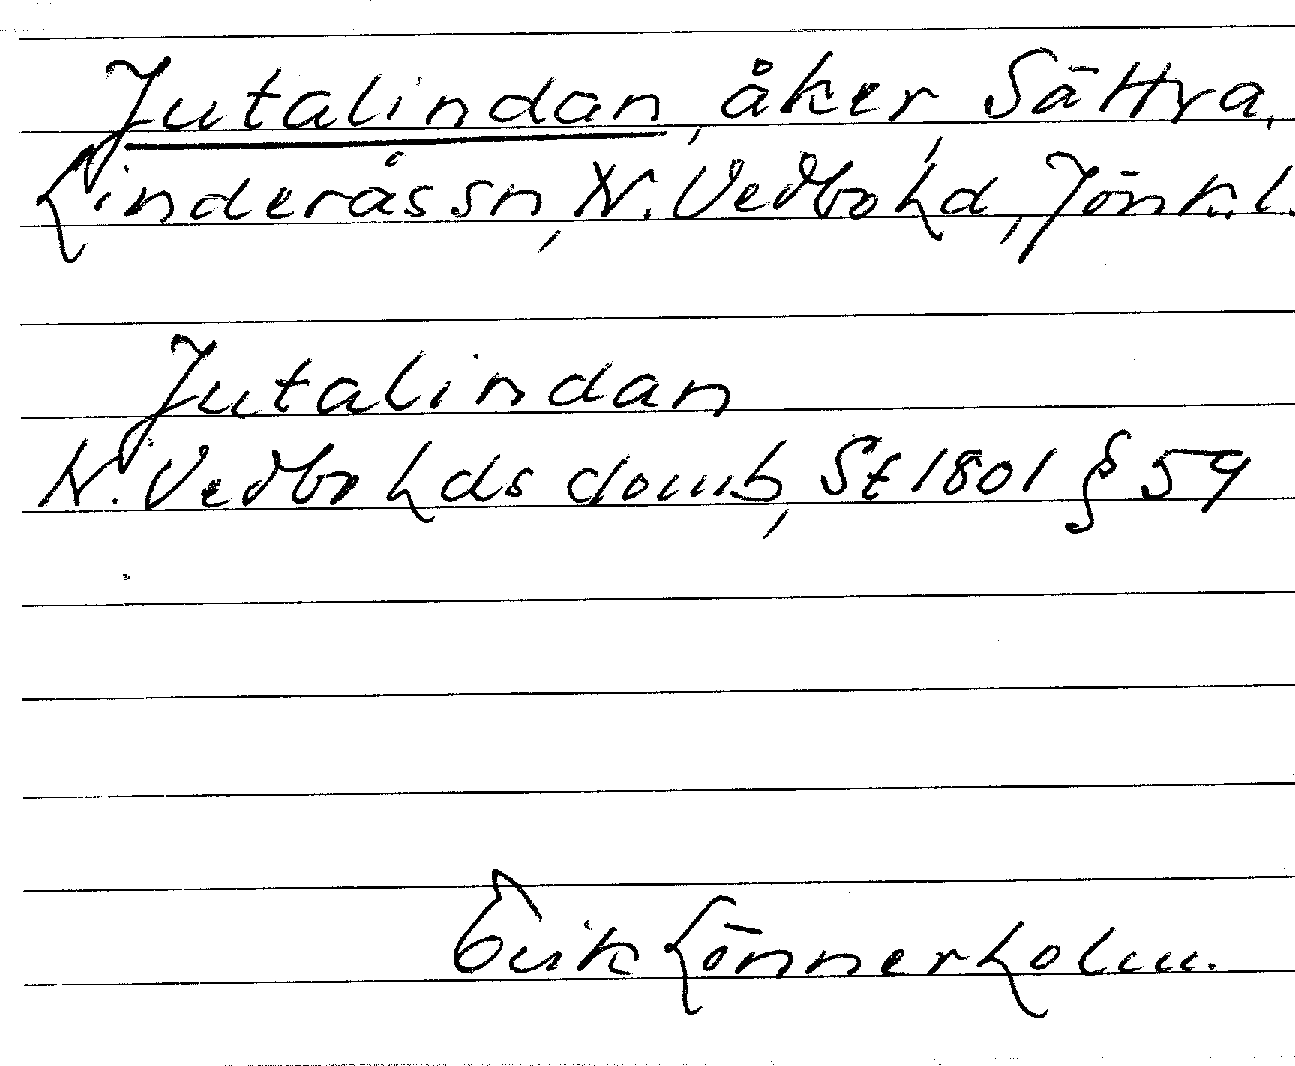 Jutalindan, åker, Sättra,
Linderås sn, N. Vedbo hd, Jönk. l.
Jutalindan
N. Vedbo hds domb, St 1801 § 59
Erik Lönnerholm.